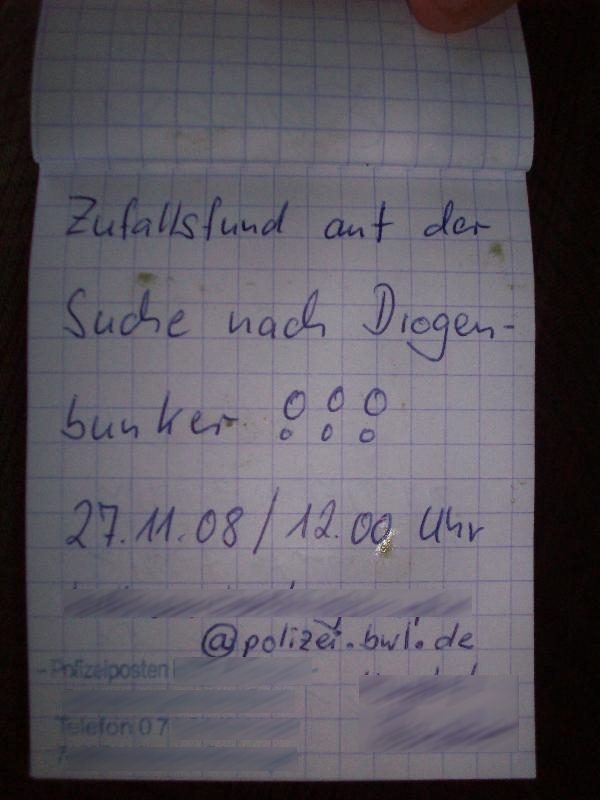 Zufallsfund auf der
Suche nach Drogen-
bunker !!!
27.11.08 / 12.00 Uhr
@polizei.bwl.de
- Polizeiposten
Telefon 07
7